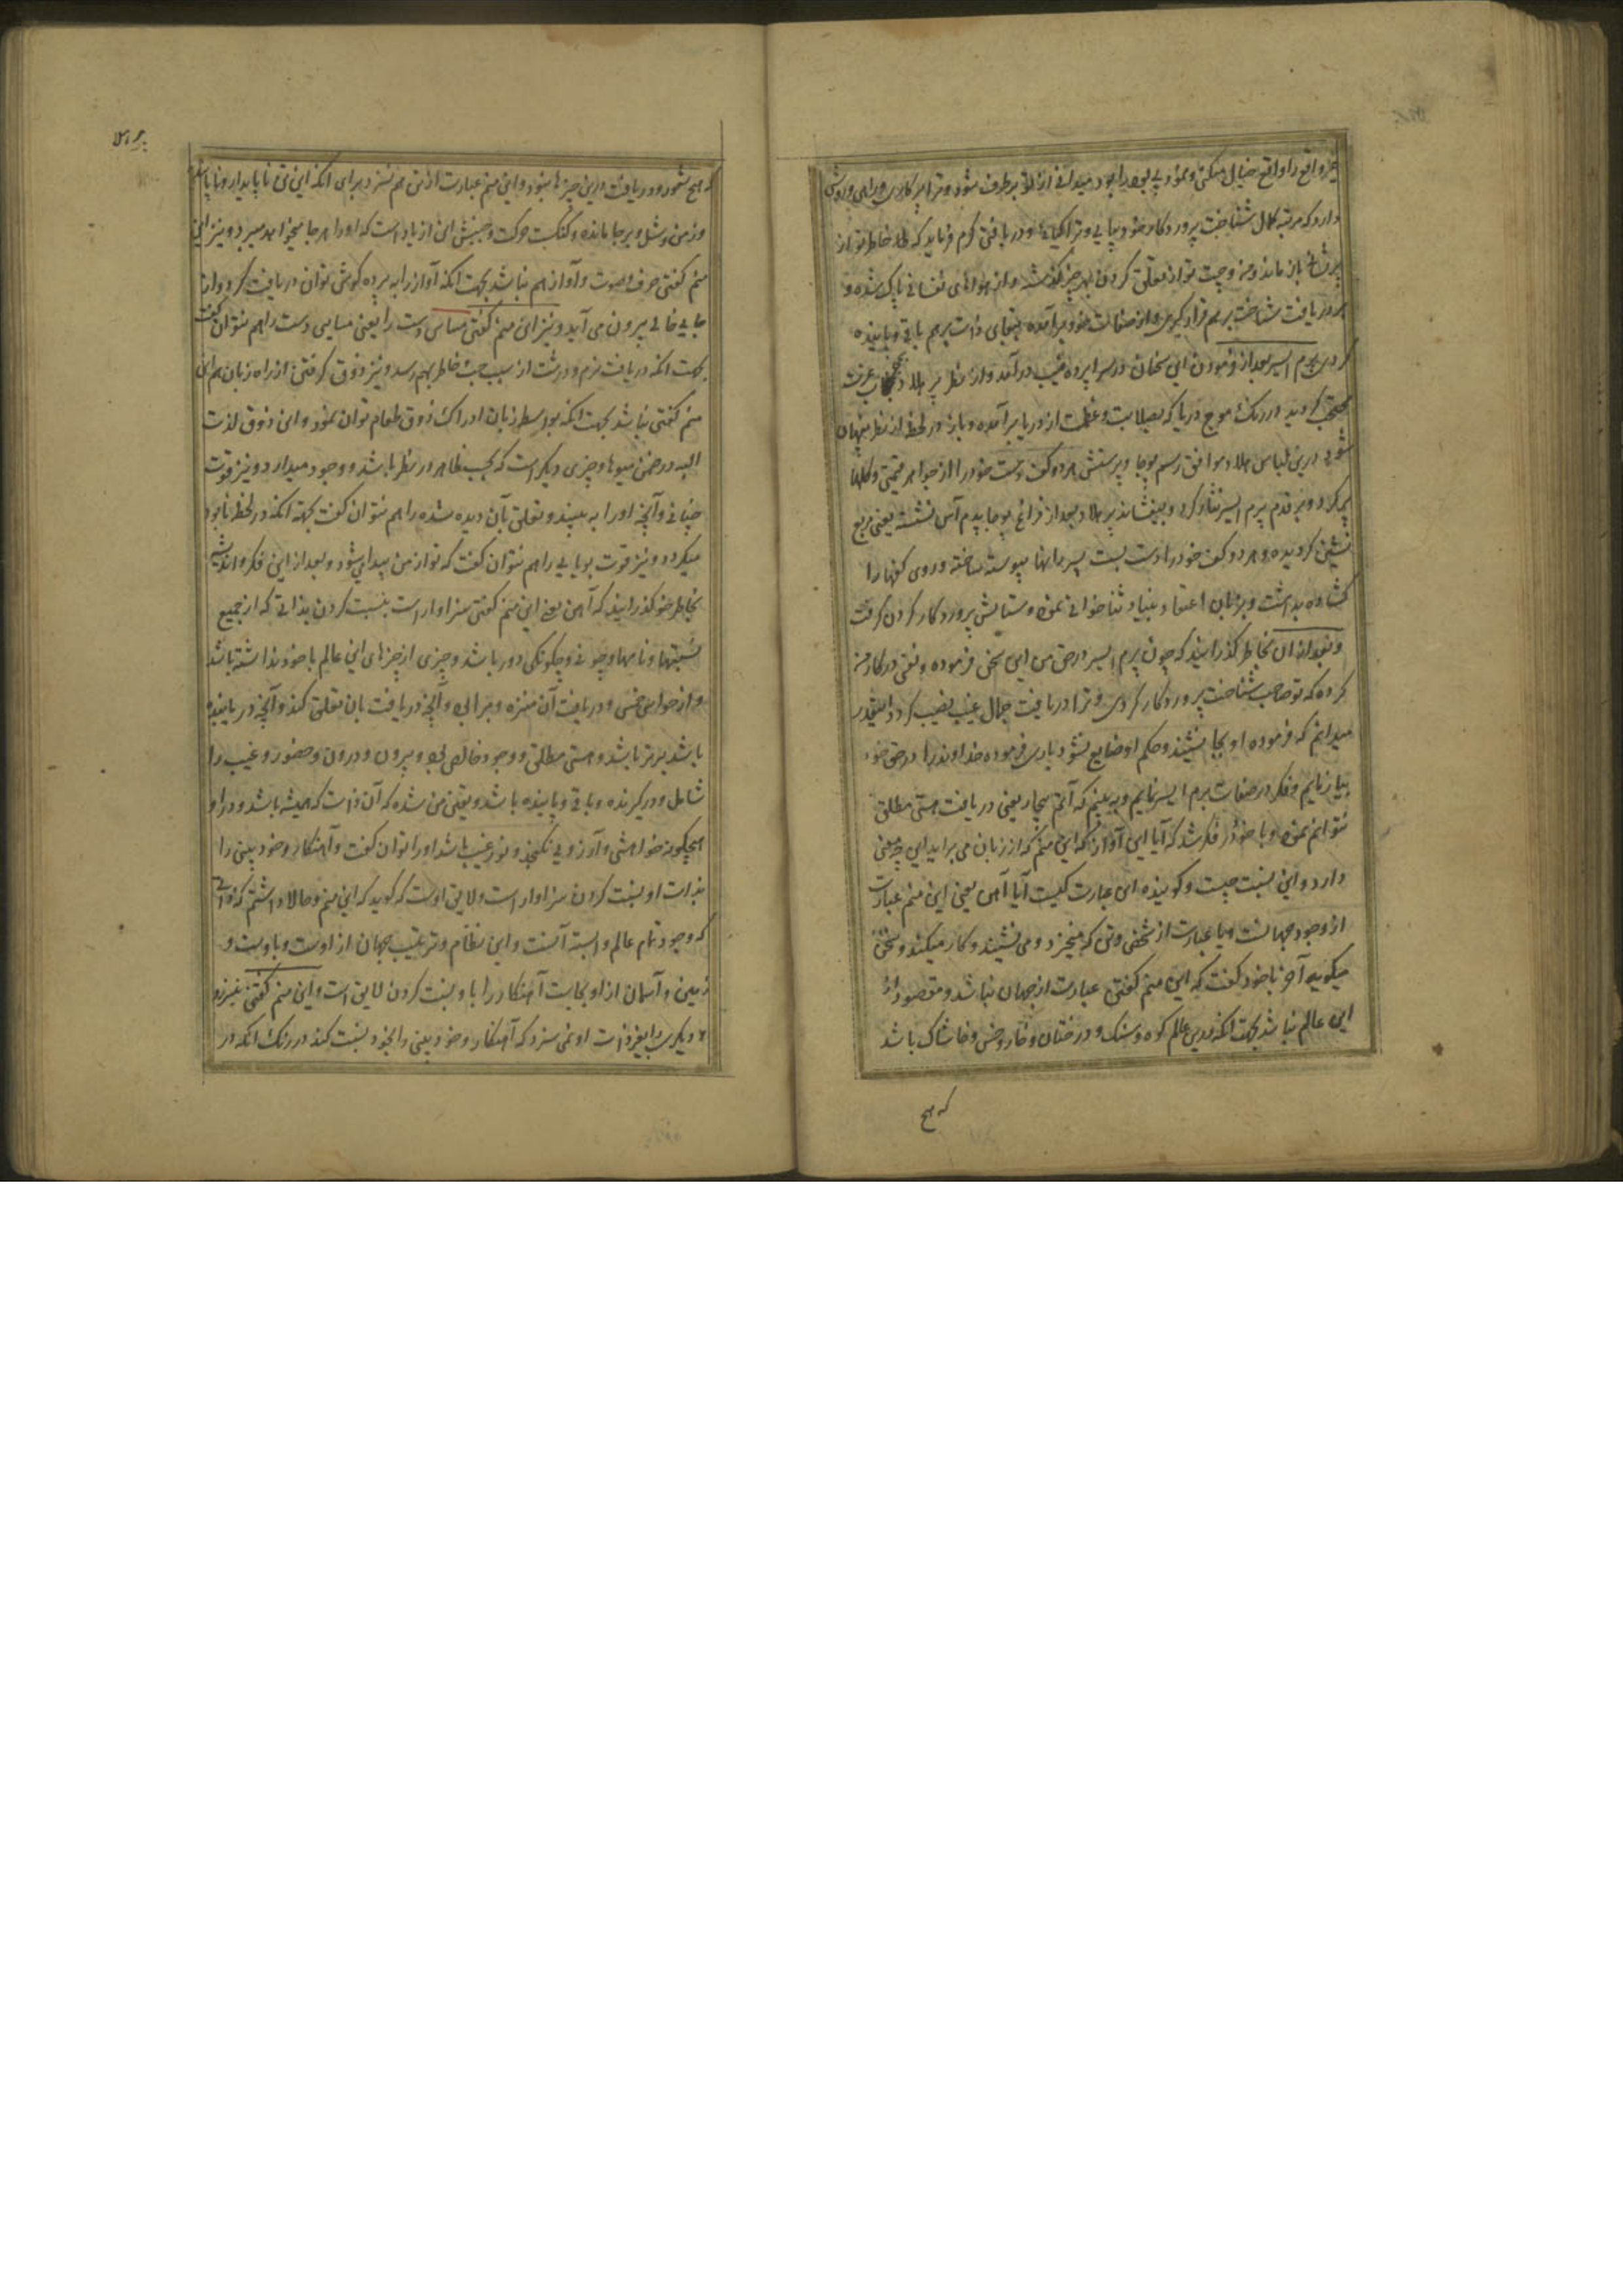 غیر واقع را واقع خیال میکنی و نمود بی بود را بود میدانی از تو برطرف شود و ترا
دارد که مرتبه کمال شناخت پروردگار خود بیابی و ترا و دریافتن کرم فرماید که خاطر تو از
باز ماند و من و جهت تو از تعلق کردن بهر چیز گذشته و از هواهای نفسانی پاک شده و
در یافت شناخت برهم قرار گیری و از صفات خود برآمده ببقای ذات برهم باقی و پاینده
گردی پرم ایسر بعد از فرمودن این سخنان در سراپرده غیب درآمد و از نظر پرهلاد بحجاب عزت
محتجب گردید در رنگ موج دریا که بصلابت و عظمت از دریا برآمده و باز در لحظه از نظر پنهان
شود درین لباس هلاد موافق رسم پوجا و پرستش هر دو کف دست خود را از جواهر قیمتی و گلها
پر کرد و بر قدم پرم ایسر نثار کرد و بیفشاند پرهلاد بعد از فراغ پوجا پدم آسن نشسته یعنی مربع
نشین گردیده و هر دو کف خود را دست بست بسر رانها پیوسته ساخته و روی کفها را
گشاده بداشت و بزبان اعتقاد بنیاد ثناخوانی نموده و ستایش پروردگار کردن گرفت
و بعد ازان بخاطر گذرانید که چون پرم ایسر در حق من این سخن فرموده و نفس در کار من
کرده که تو صاحب شناخت پروردگار گردی و ترا دریافت جمال غیب نصیب گردد اینقدر
میدانم که فرموده او بجا بنشیند و حکم او ضایع نشود باری فرموده خداوند را در حق خود
بیازمایم و فکر در صفات پرم ایسر نمایم و به بینم که آتم بچار یعنی دریافت هستی مطلق
بتوانم نمود و با خود در فکر شد که آیا این آواز که این منم که از زبان می براید این چه معنی
دارد و این نسبت چیست و گوینده این عبارت کیست آیا آهن یعنی این منم عبارت
از وجود جهانست و یا عبارت از شخصی و تنی که میخیزد و می نشیند و کار میکند و سخن
میگوید آخر با خود گفت که این منم گفتن عبارت از جهان نباشد و مقصود از
این عالم نباشد بجهت آنکه درین عالم کوه و سنگ و درختان و خار و خس و خاشاک باشد
که هیچ
که هیچ شعور و دریافت درین چیزها نبود و این منم عبارت از تن هم نسزد برای آنکه این تن ناپایدار و
و زمن و شل و بر جا مانده و گنگست حرکت و جنبش این از باد است که او را هر جا میخواهد میبرد و نیز این
منم گفتن حرف و صوت و آواز هم نباشد بجهت آنکه آواز را به پرده گوش توان دریافت کرد و از
جایی خالی بیرون می آید و نیز این منم گفتن مساس دست را یعنی مساس دست را هم نتوان گفت
بجهت آنکه دریافت نرم و درشت از سبب جست خاطر بهم رسد و نیز ذوق گرفتن از راه زبان هم این
منم گفتن نباشد بجهت آنکه بواسطه زبان ادراک ذوق طعام توان نمود و این ذوق لذت
البه در ضمن میوها و چیزی دیگر است که بحسب ظاهر در نظر باشد و وجود میدارد و نیز قوت
بینائی و آنچه او را به بیند و تعلق بآن دیده شده را هم نتوان گفت بجهة آنکه در لحظه نابود
میگردد و نیز قوت بویایی را هم نتوان گفت که تو از من پیدا میشود و بعد از این فکر و اندیشه
بخاطر خود گذرانید که آهن یعنی این منم گفتن سزاوار است بنسبت کردن بذاتی که از جمیع
نسبتها و نامها و چونی و چگونگی دور باشد و چیزی از چیزهای این عالم با خود نداشته باشد
و از حواس خمس و دریافت آن منزه و مبرا بود و آنچه دریافت بآن تعلق کند و آنچه دریابنده
باشد برتر باشد و هستی مطلق و وجود خالص بود و بیرون و درون و حضور و غیب را
شامل و درگیرنده و باقی و پاینده باشد و یقین من شده که آن ذات که همیشه باشد و در او
هیچگونه خواهشی و آرزویی نگنجد و نور غیب باشد او را توان گفت و آهنکار و خود بینی را
بذات او نسبت کردن سزاوار است و لایق اوست که گوید که این منم و حالا دانستم که ذاتی
که وجود تمام عالم وابسته آنست و این نظام و ترتیب جهان از اوست و باوست و
زمین و آسمان از او بجاست آهنکار را باو نسبت کردن لایق است و این منم گفتن
دیگری را بغیر ذات او نمی سزد که آهنکار و خود بینی را بخود نسبت کند در رنگ آنکه در